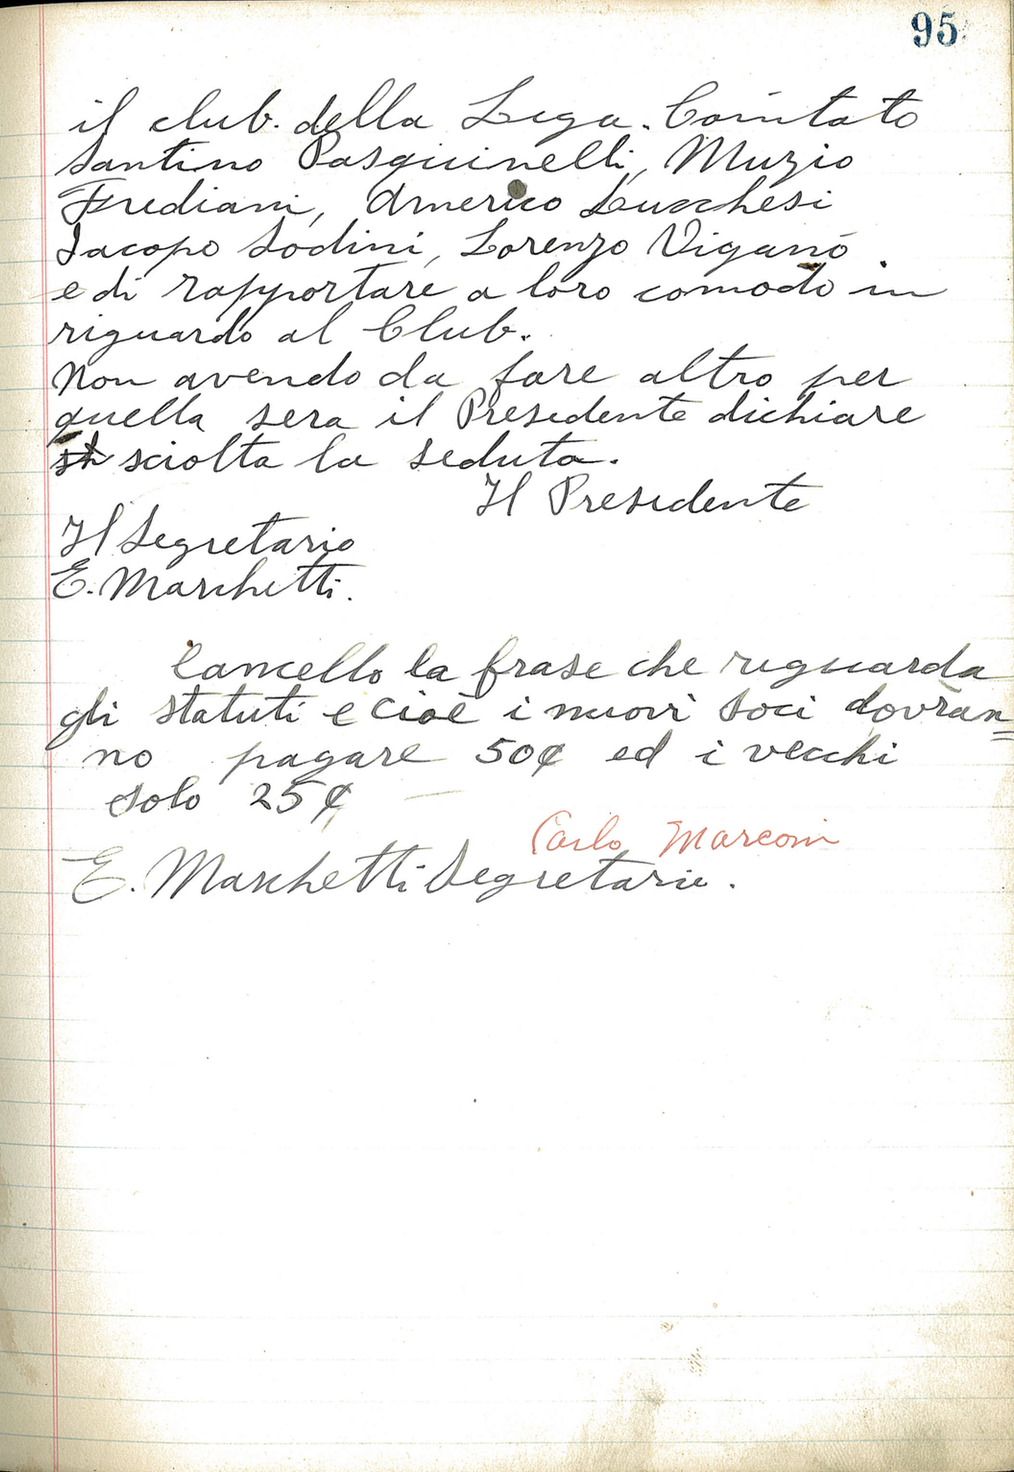 95
il club. della Lega. Comitato
Santino Pasquinelli, Muzio
Frediani, Americo Lucchesi
Jacopo Sodini, Lorenzo Viganò
e di rapportare a loro comodo in
riguardo al Club.
Non avendo da fare altro per
quella sera il Presedente dichiare
sciolta la seduta.
Il Presedente
Il Segretario
E. Marchetti.
Cancello la frase che riguarda
gli statuti e cioè i nuovi soci dovran=
no pagare 50¢ ed i vecchi
solo 25¢
Carlo Marconi
E. Marchetti Segretario.